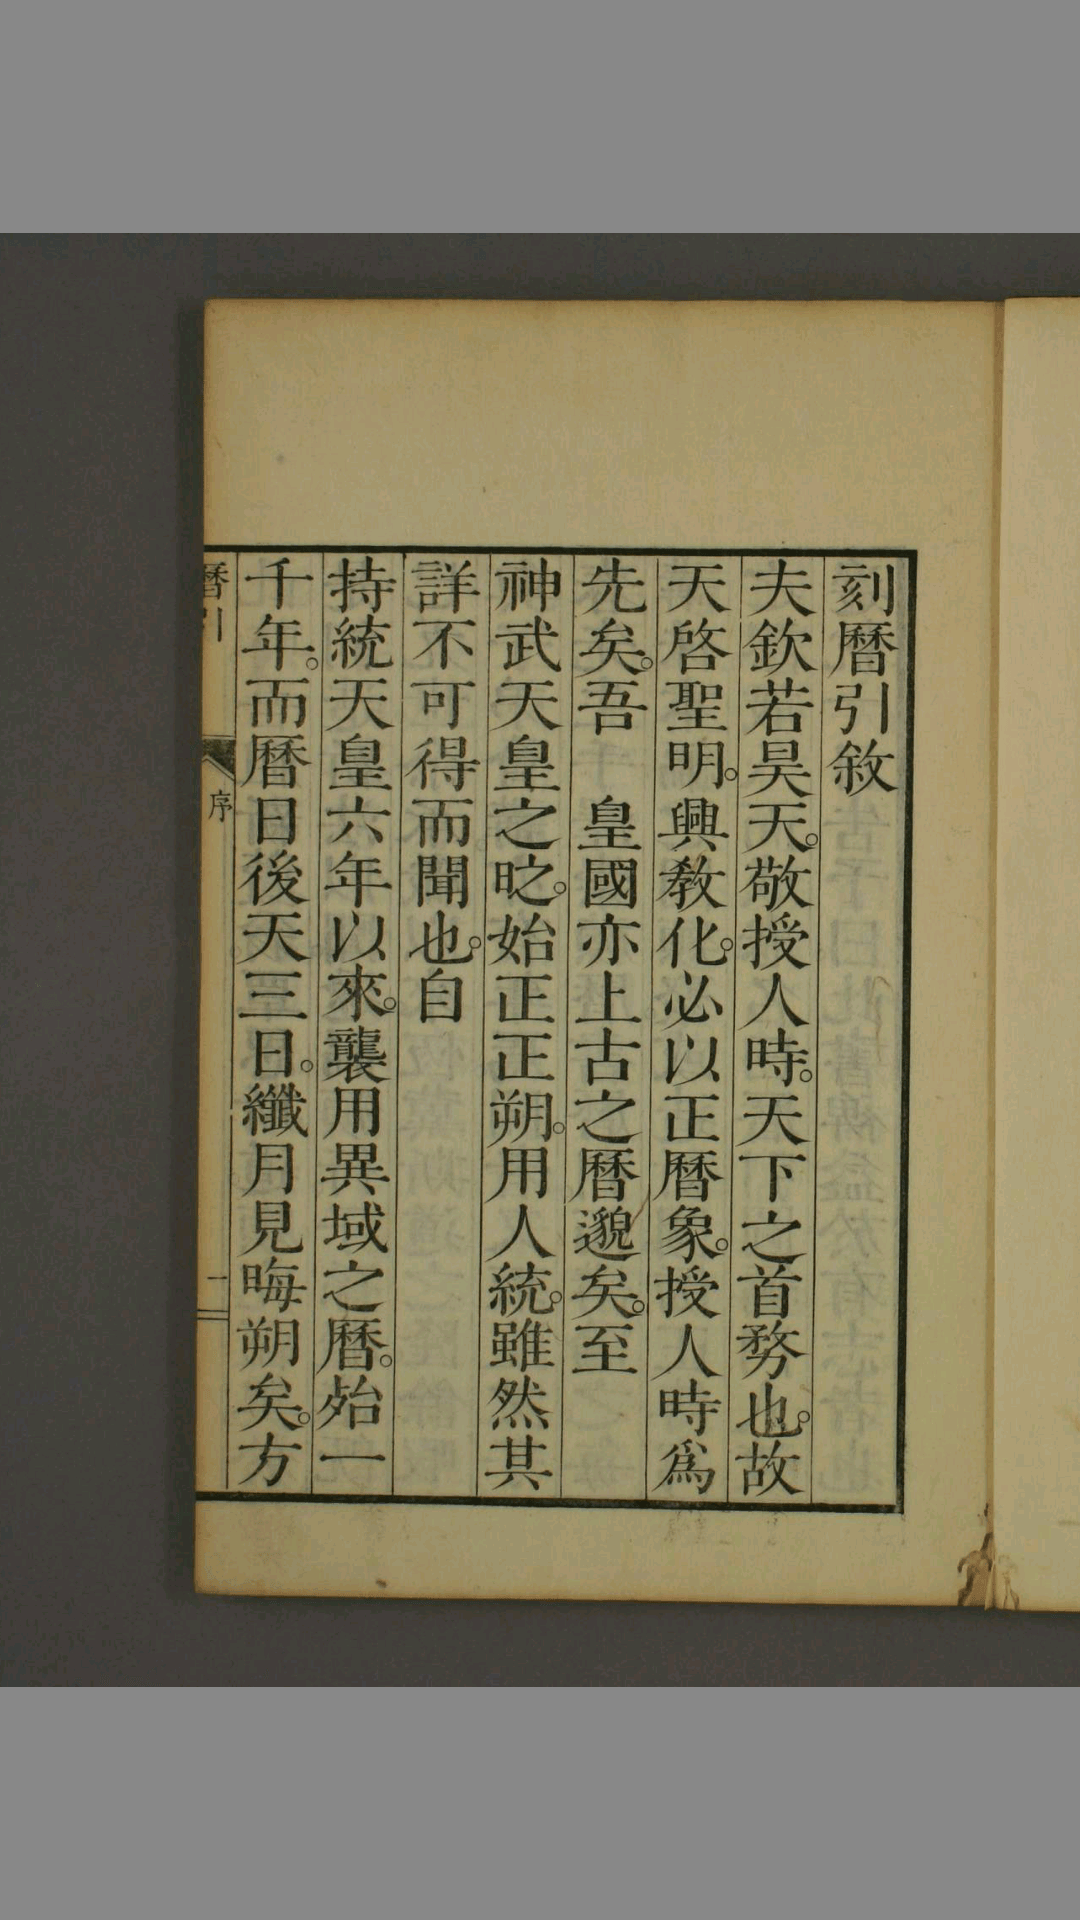 刻曆引敘
夫欽若昊天。敬授人時。天下之首務也。故
天啓聖明。興教化。必以正曆象。授人時爲
先矣。吾　皇國亦上古之曆邈矣。至
神武天皇之。始正正朔。用人統。雖然其
詳不可得而聞也。自
持統天皇六年以來。襲用異域之曆。殆一
千年。而曆日後天三日。纖月見晦朔矣。方
曆引
序
一